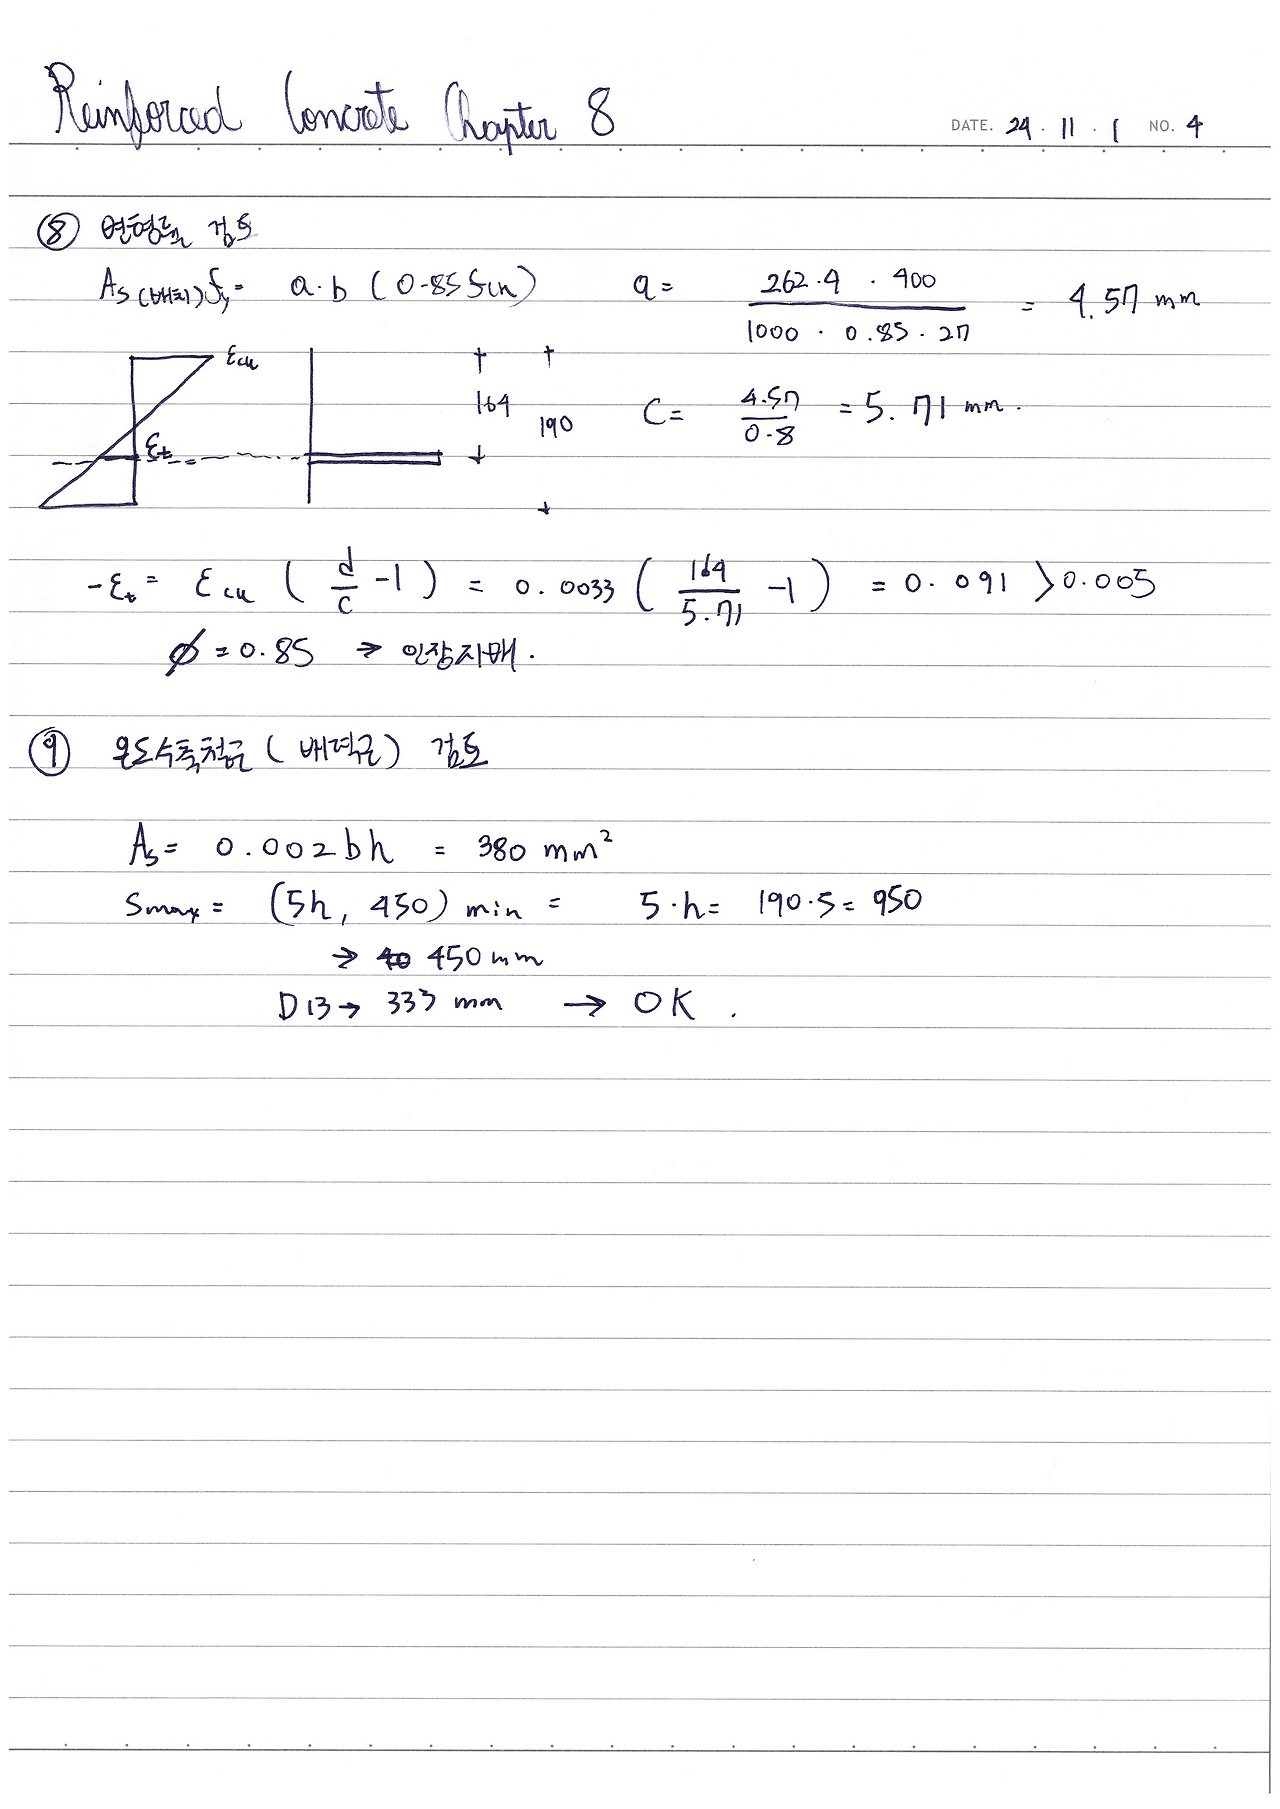 Reinforced Concrete Chapter 8
DATE. 24 . 11 . 1 NO. 4
⑧ 변형률 검토
As(배치)fy = a·b (0.85fck) a = 262.4 · 400 / 1000 · 0.85 · 27 = 4.57 mm
εcu
164
190
C = 4.57 / 0.8 = 5.71 mm.
εt
-εt = εcu ( d/c -1 ) = 0.0033 ( 164/5.71 -1 ) = 0.091 > 0.005
ø = 0.85 → 인장지배.
⑨ 온도수축철근 (배력근) 검토
As = 0.002bh = 380 mm²
Smax = (5h, 450) min = 5·h = 190·5 = 950
→ 450 mm
D13 → 333 mm → OK .